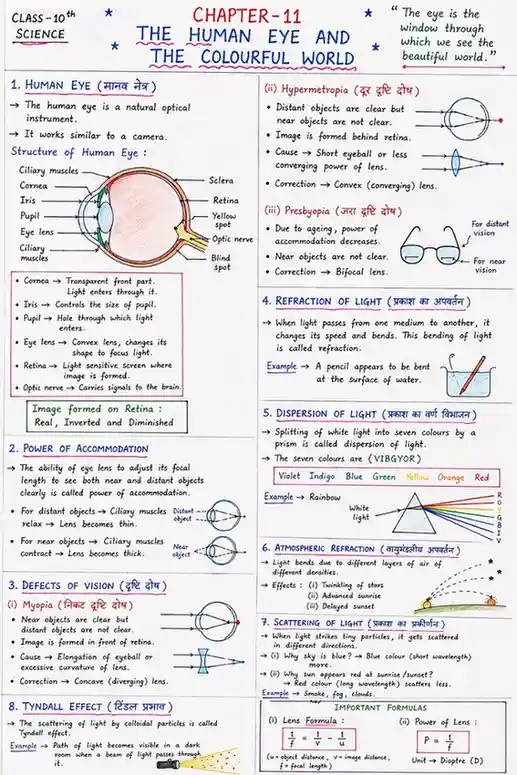 CLASS-10th
SCIENCE
CHAPTER-11
THE HUMAN EYE AND
THE COLOURFUL WORLD
"The eye is the
window through
which we see the
beautiful world."
1. HUMAN EYE (मानव नेत्र)
→ The human eye is a natural optical
instrument.
→ It works similar to a camera.
Structure of Human Eye :
Ciliary muscles
Cornea
Iris
Pupil
Eye lens
Ciliary
muscles
Sclera
Retina
Yellow
spot
Optic nerve
Blind
spot
• Cornea → Transparent front part.
Light enters through it.
• Iris → Controls the size of pupil.
• Pupil → Hole through which light
enters.
• Eye lens → Convex lens, changes its
shape to focus light.
• Retina → Light sensitive screen where
image is formed.
• Optic nerve → Carries signals to the brain.
Image formed on Retina :
Real, Inverted and Diminished
2. POWER OF ACCOMMODATION
→ The ability of eye lens to adjust its focal
length to see both near and distant objects
clearly is called power of accommodation.
• For distant objects → Ciliary muscles
relax → Lens becomes thin.
Distant
object
• For near objects → Ciliary muscles
contract → Lens becomes thick.
Near
object
3. DEFECTS OF VISION (दृष्टि दोष)
(i) Myopia (निकट दृष्टि दोष)
• Near objects are clear but
distant objects are not clear.
• Image is formed in front of retina.
• Cause → Elongation of eyeball or
excessive curvature of lens.
• Correction → Concave (diverging) lens.
8. TYNDALL EFFECT (टिंडल प्रभाव)
→ The scattering of light by colloidal particles is called
Tyndall effect.
Example → Path of light becomes visible in a dark
room when a beam of light passes through
it.
(ii) Hypermetropia (दूर दृष्टि दोष)
• Distant objects are clear but
near objects are not clear.
• Image is formed behind retina.
• Cause → Short eyeball or less
converging power of lens.
• Correction → Convex (converging) lens.
(iii) Presbyopia (जरा दृष्टि दोष)
• Due to ageing, power of
accommodation decreases.
• Near objects are not clear.
• Correction → Bifocal lens.
For distant
vision
For near
vision
4. REFRACTION OF LIGHT (प्रकाश का अपवर्तन)
→ When light passes from one medium to another, it
changes its speed and bends. This bending of light
is called refraction.
Example → A pencil appears to be bent
at the surface of water.
5. DISPERSION OF LIGHT (प्रकाश का वर्ण विभाजन)
→ Splitting of white light into seven colours by a
prism is called dispersion of light.
→ The seven colours are (VIBGYOR)
Violet Indigo Blue Green Yellow Orange Red
Example → Rainbow
White
light
R
O
Y
G
B
I
V
6. ATMOSPHERIC REFRACTION (वायुमंडलीय अपवर्तन)
→ Light bends due to different layers of air of
different densities.
→ Effects : (i) Twinkling of stars
(ii) Advanced sunrise
(iii) Delayed sunset
7. SCATTERING OF LIGHT (प्रकाश का प्रकीर्णन)
→ When light strikes tiny particles, it gets scattered
in different directions.
→ (i) Why sky is blue? → Blue colour (short wavelength)
more.
→ (ii) Why sun appears red at sunrise/sunset?
→ Red colour (long wavelength) scatters less.
Example → Smoke, fog, clouds.
IMPORTANT FORMULAS
(i) Lens Formula :
1/f = 1/v - 1/u
(u = object distance, v = image distance,
f = focal length)
(ii) Power of Lens :
P = 1/f
Unit → Dioptre (D)